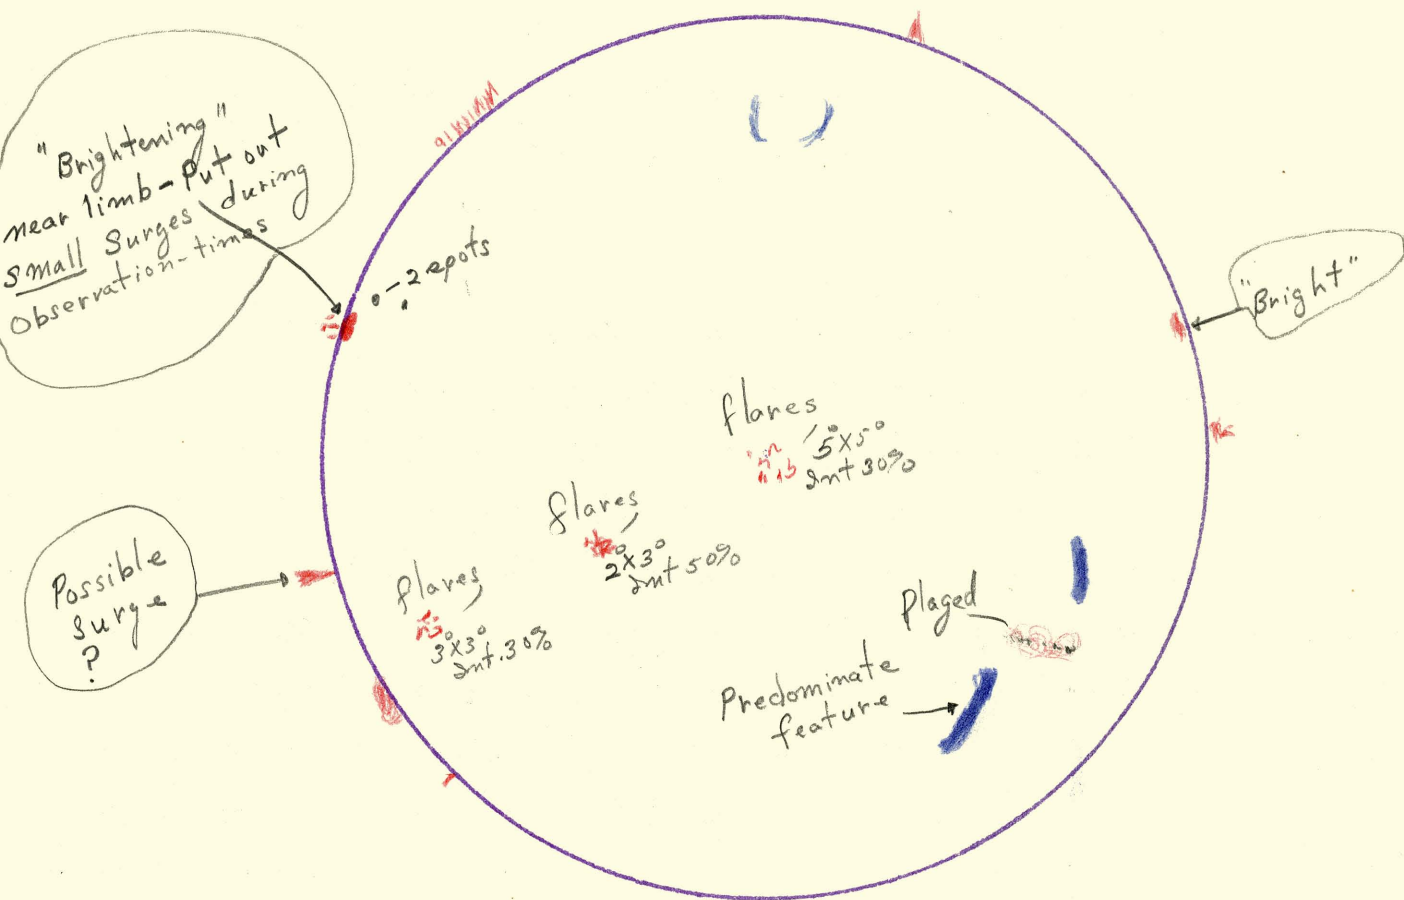 "Brightening"
near limb - Put out
small Surges during
Observation-times
- 2 spots
"Bright"
flares
5°X5°
Int 30%
flares
2°X3°
Int 50%
flares
3°X3°
Int. 30%
Possible
Surge
?
Plaged
Predominate
feature